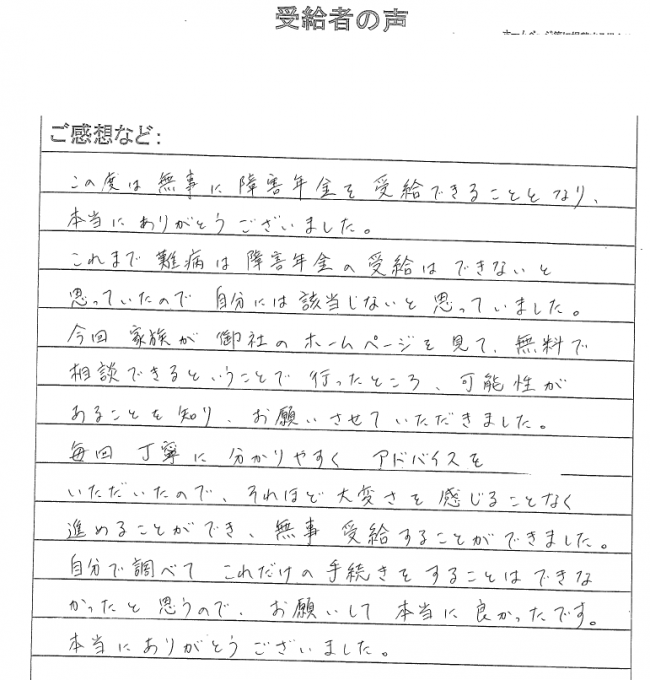 受給者の声
ご感想など:
この度は無事に障害年金を受給できることとなり、
本当にありがとうございました。
これまで難病は障害年金の受給はできないと
思っていたので自分には該当じないと思っていました。
今回家族が御社のホームページを見て、無料で
相談できるということで行ったところ、可能性が
あることを知り、お願いさせていただきました。
毎回丁寧に分かりやすくアドバイスを
いただいたので、それほど大変さを感じることなく
進めることができ、無事受給することができました。
自分で調べてこれだけの手続きをすることはできな
かったと思うので、お願いして本当に良かったです。
本当にありがとうございました。